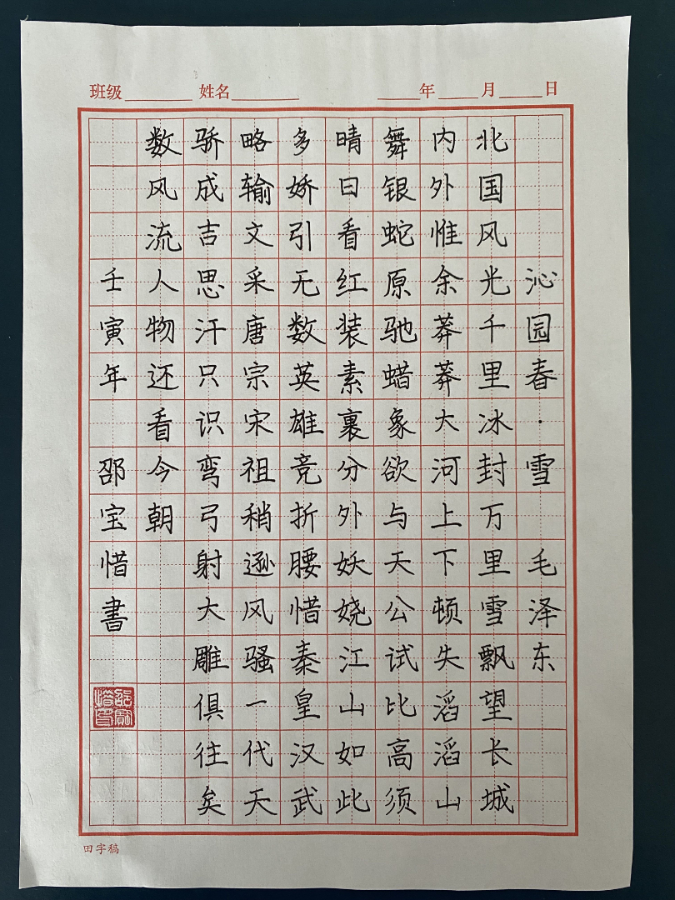 班级 姓名 年 月 日
沁园春·雪 毛泽东
北国风光千里冰封万里雪飘望长城
内外惟余莽莽大河上下顿失滔滔山
舞银蛇原驰蜡象欲与天公试比高须
晴日看红装素裹分外妖娆江山如此
多娇引无数英雄竞折腰惜秦皇汉武
略输文采唐宗宋祖稍逊风骚一代天
骄成吉思汗只识弯弓射大雕俱往矣
数风流人物还看今朝
壬寅年 邵宝惜書
田字稿